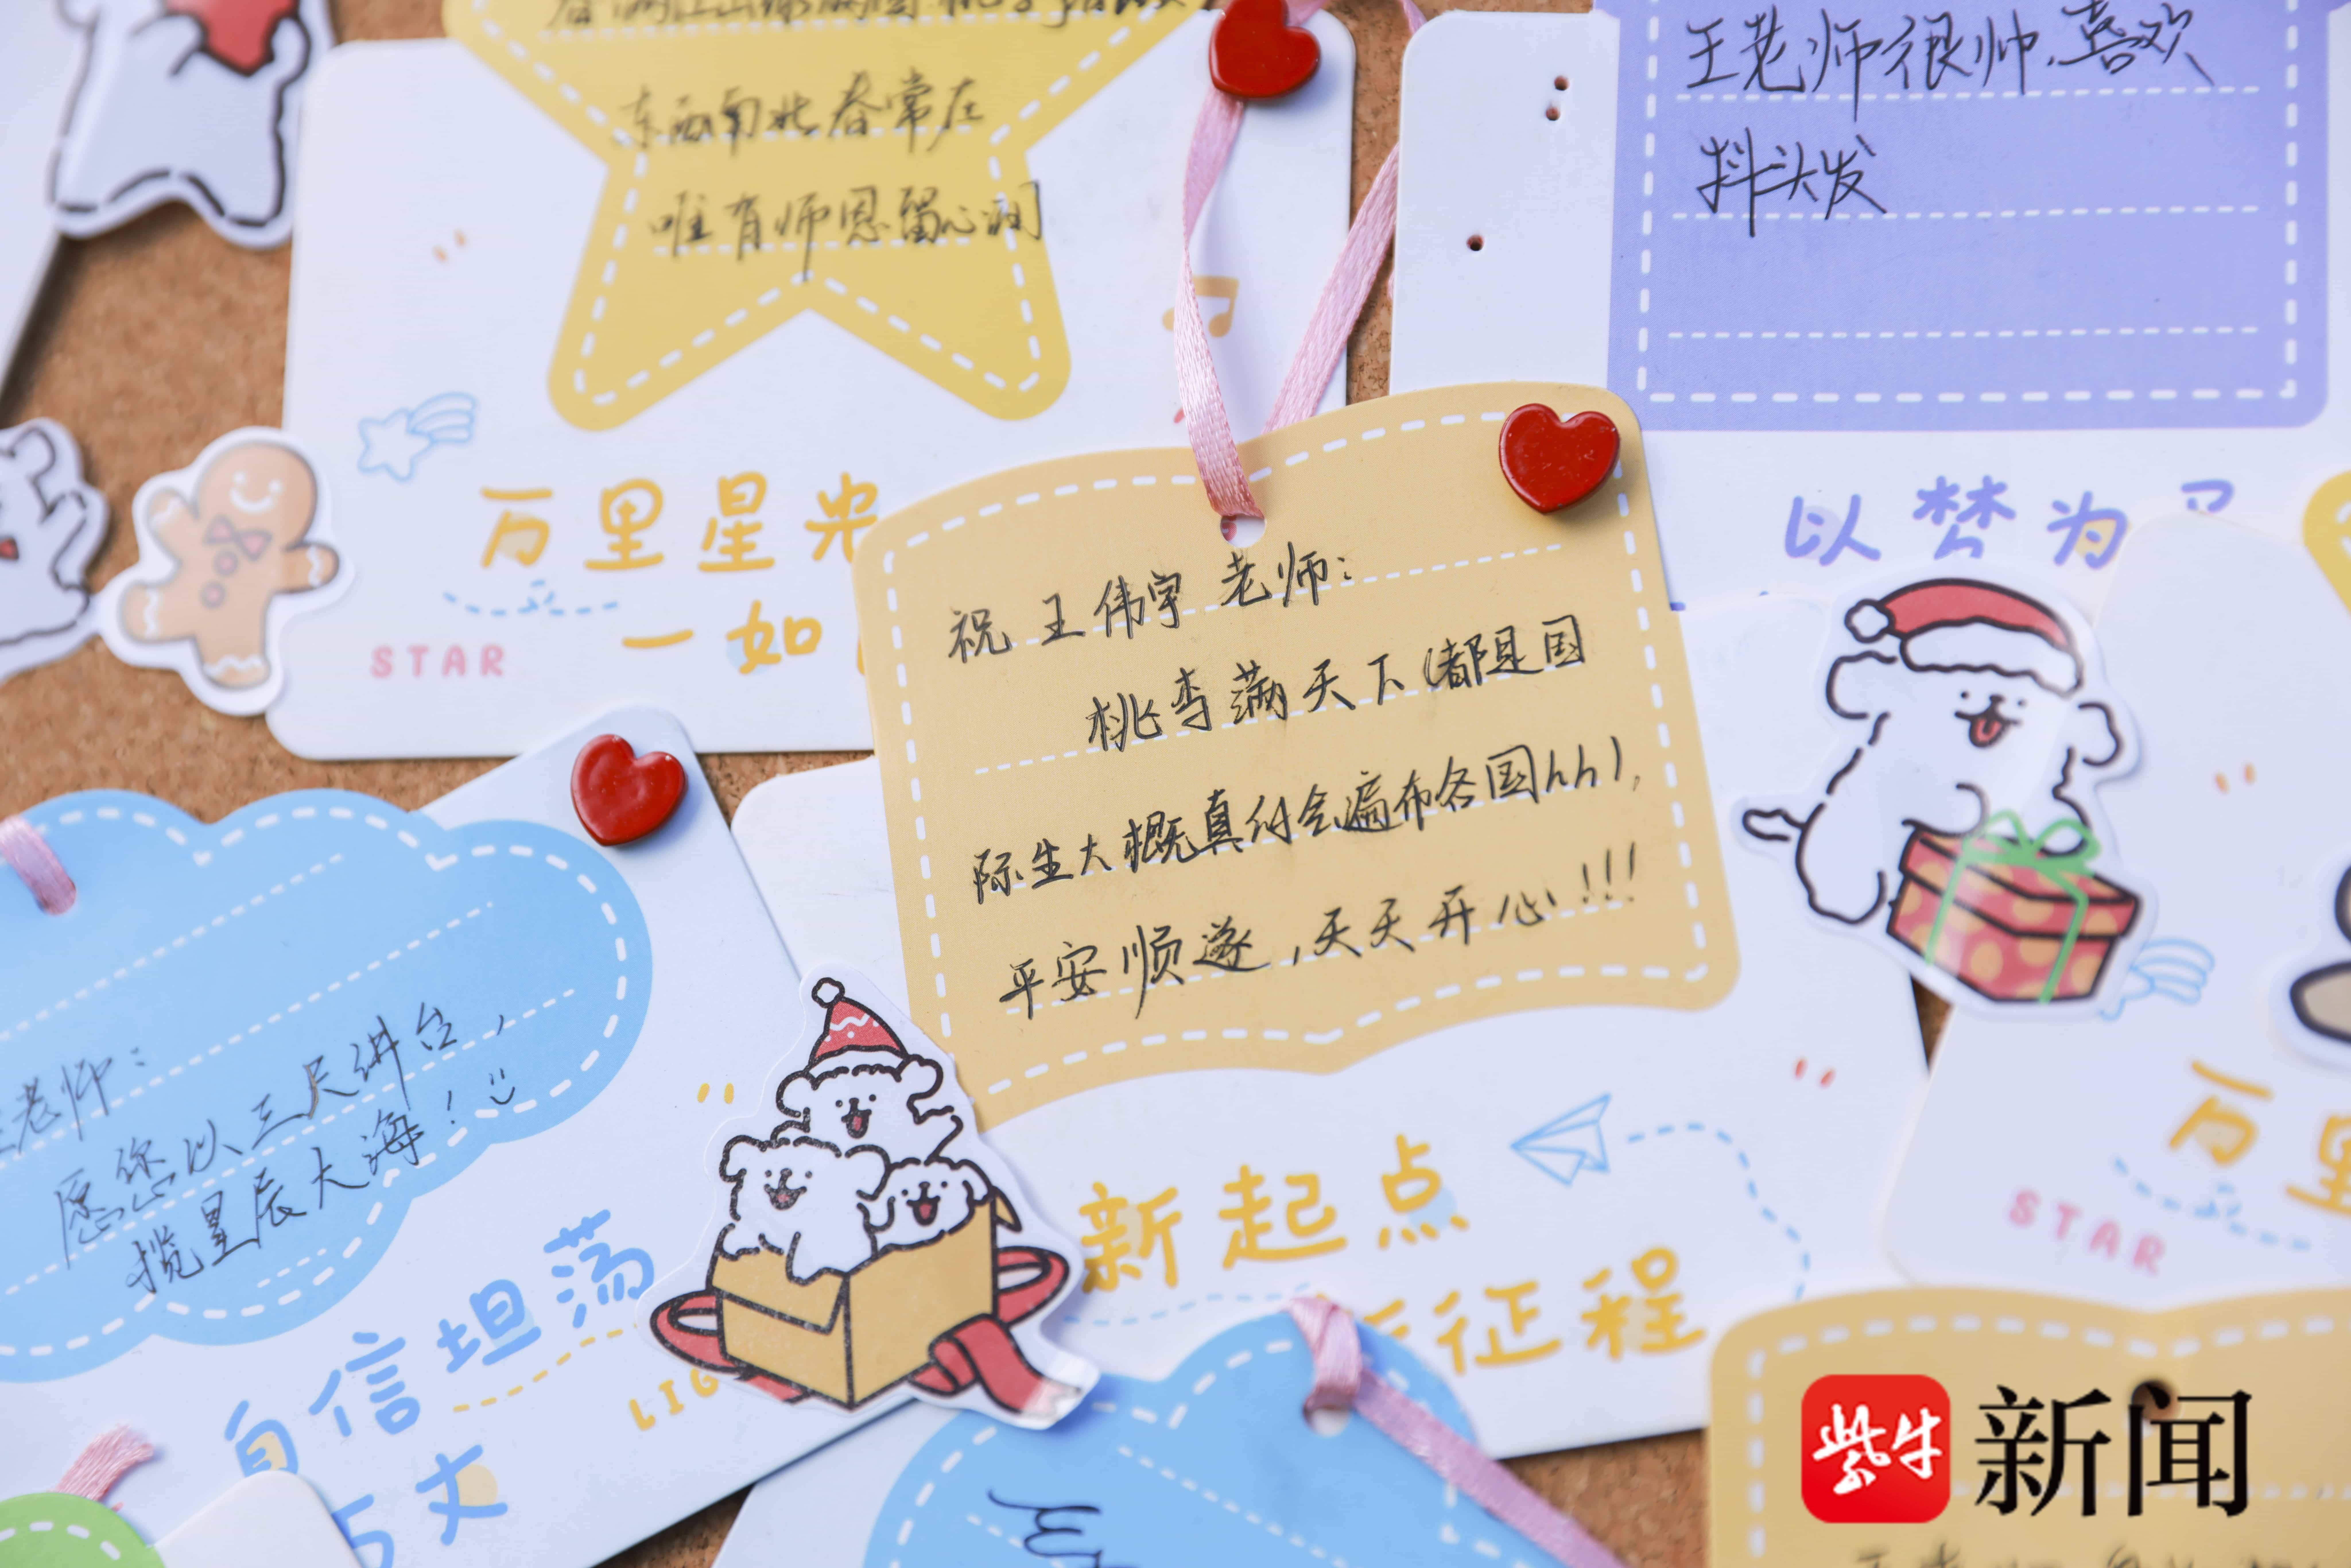 东西南北春常在
唯有师恩留心间
王老师很帅，喜欢
抖头发
万里星光
一如
STAR
以梦为
祝 王伟宇 老师：
桃李满天下（都是国
际生大概真的会遍布各国hh），
平安顺遂，天天开心！！！
老师：
愿您以三尺讲台，
揽星辰大海！
自信坦荡
LIG
新起点
征程
万里
STAR
紫牛新闻